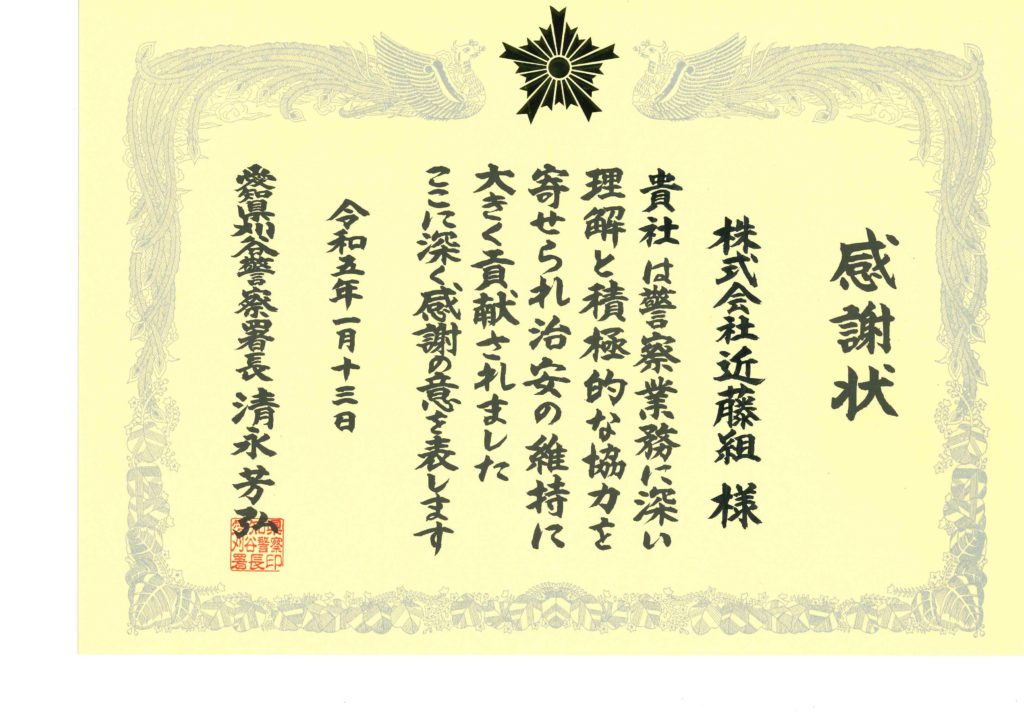 感謝状
株式会社近藤組 様
貴社は警察業務に深い
理解と積極的な協力を
寄せられ治安の維持に
大きく貢献されました
ここに深く感謝の意を表します
令和五年一月十三日
愛知県刈谷警察署長 清永芳弘